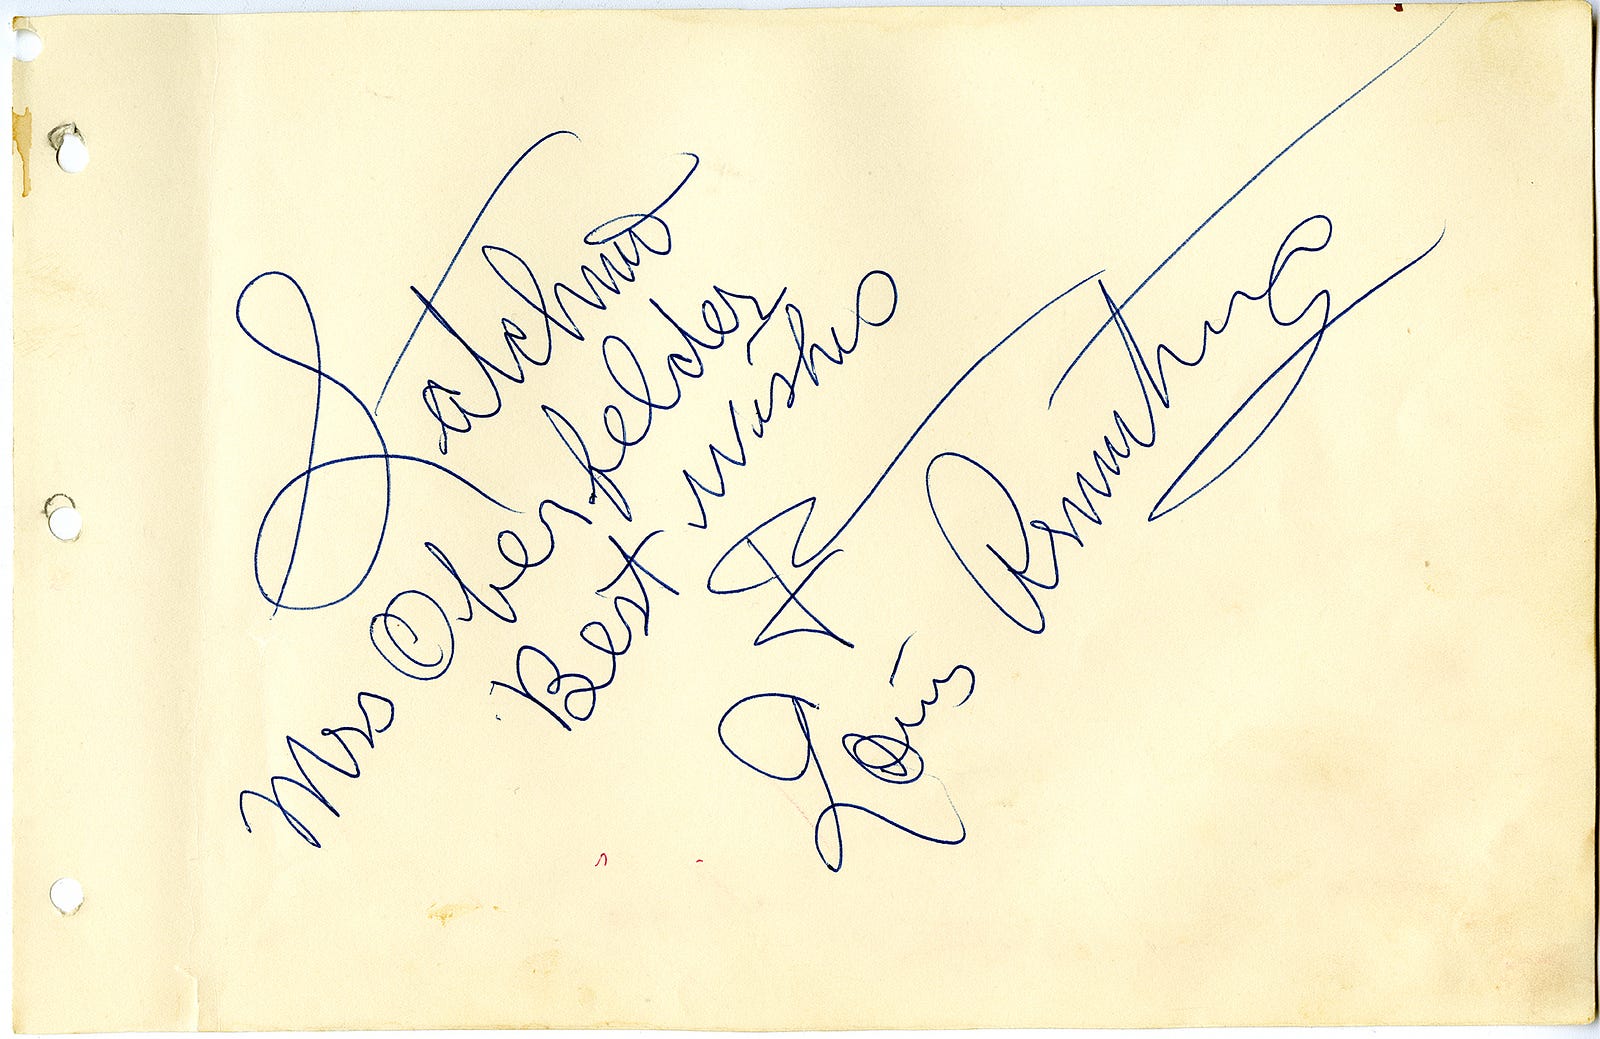 Satchmo
Mrs Oberfelder
Best wishes
From
Louis Armstrong